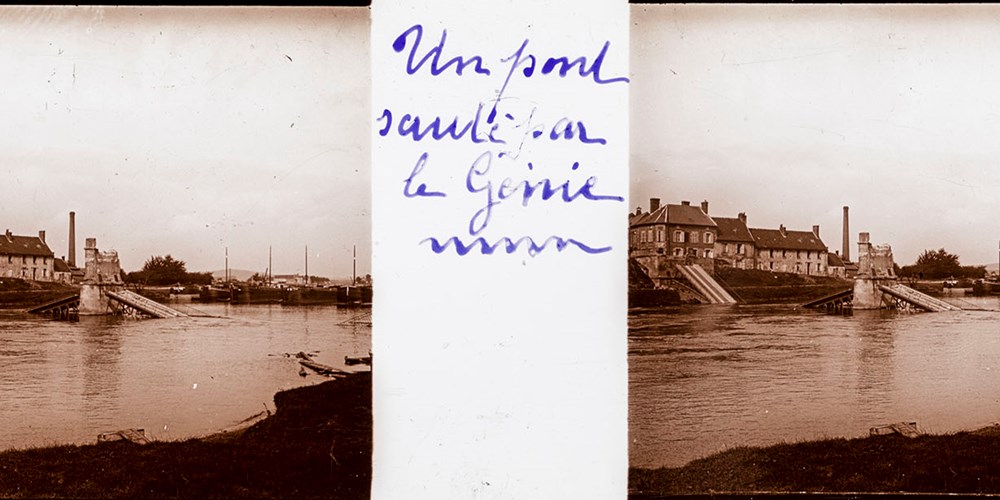 Un pont
sauté par
le Génie